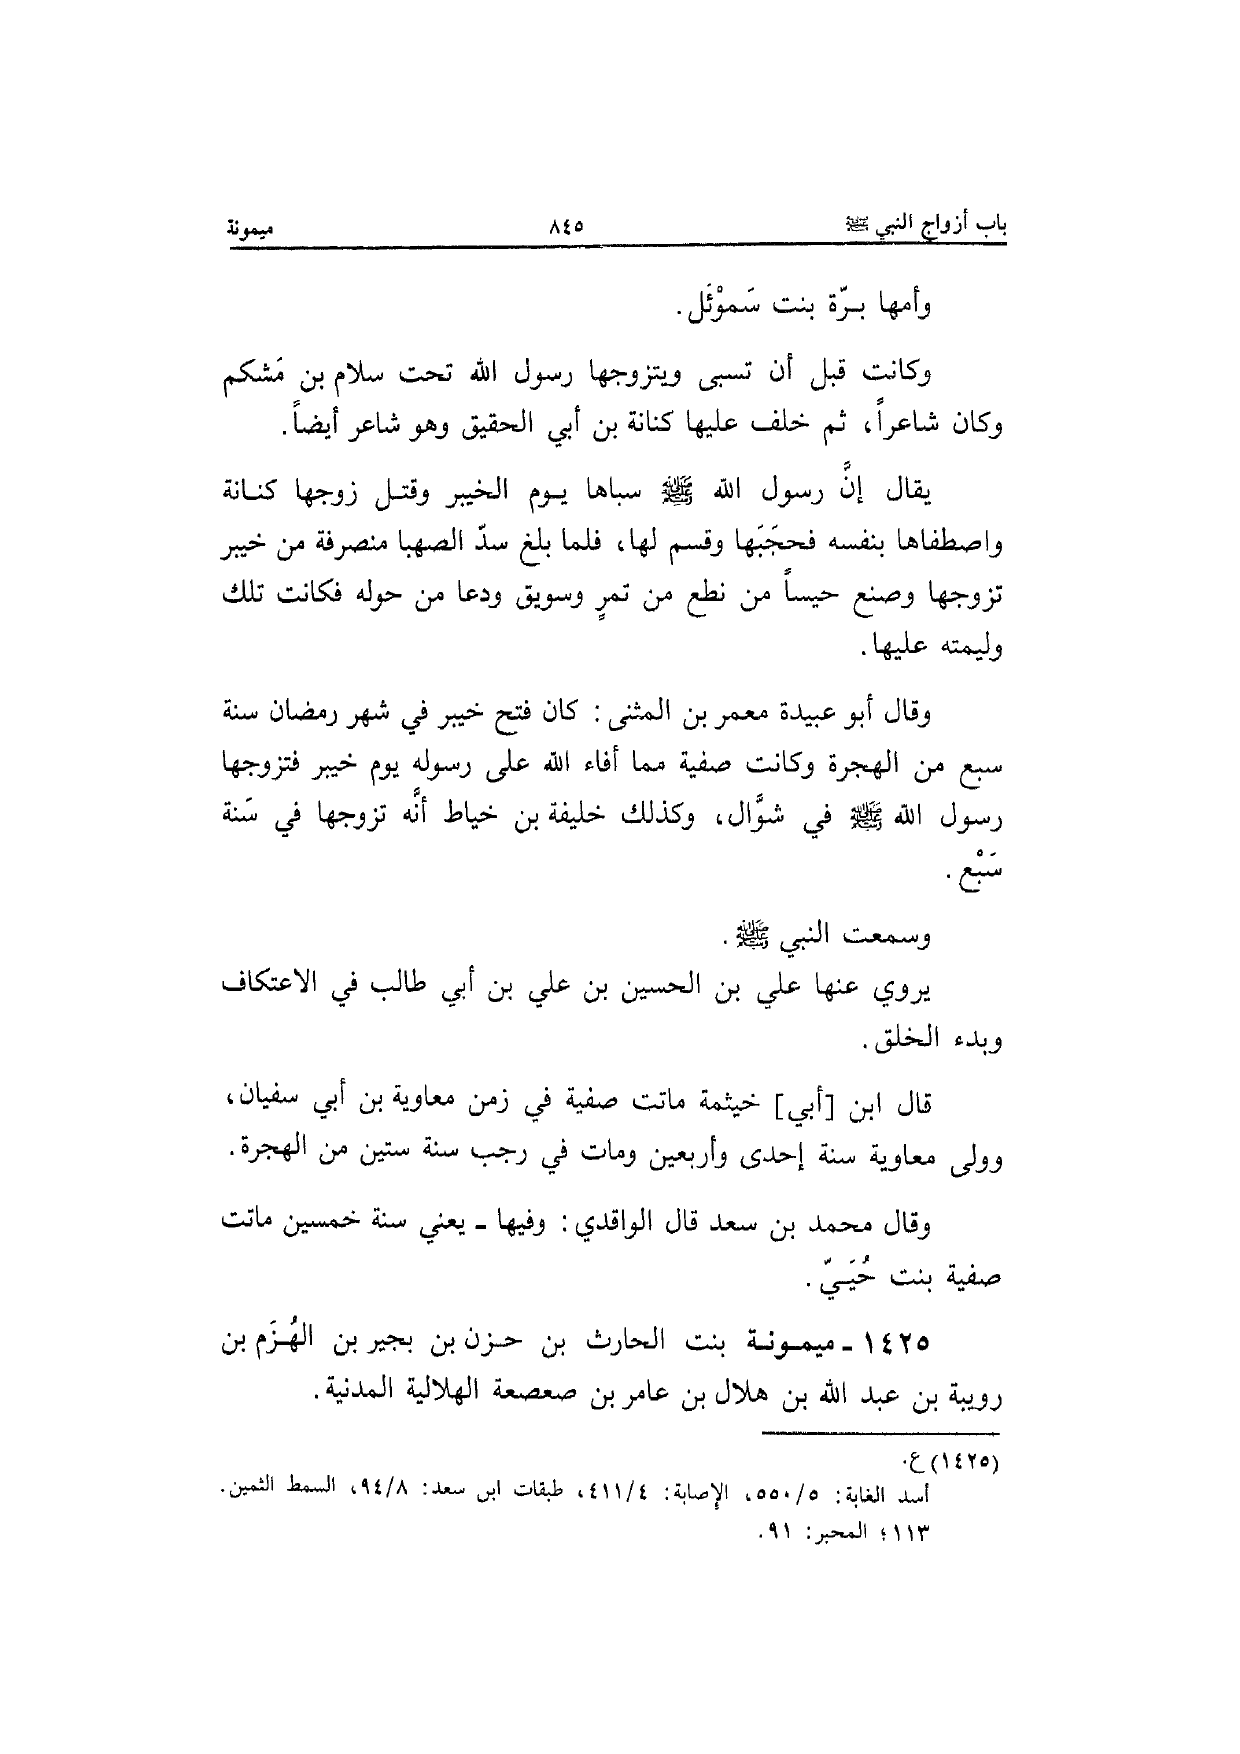 باب أزواج النبي ﷺ ٨٤٥ ميمونة
وأمها بـرّة بنت سَموْئَل.
وكانت قبل أن تسبى ويتزوجها رسول الله تحت سلام بن مَشكم
وكان شاعراً، ثم خلف عليها كنانة بن أبي الحقيق وهو شاعر أيضاً.
يقال إنَّ رسول الله ﷺ سباها يـوم الخيبر وقتـل زوجها كنـانة
واصطفاها بنفسه فحجَبَها وقسم لها، فلما بلغ سدّ الصهبا منصرفة من خيبر
تزوجها وصنع حيساً من نطع من تمرٍ وسويق ودعا من حوله فكانت تلك
وليمته عليها.
وقال أبو عبيدة معمر بن المثنى: كان فتح خيبر في شهر رمضان سنة
سبع من الهجرة وكانت صفية مما أفاء الله على رسوله يوم خيبر فتزوجها
رسول الله ﷺ في شوَّال، وكذلك خليفة بن خياط أنَّه تزوجها في سَنة
سَبْع.
وسمعت النبي ﷺ.
يروي عنها علي بن الحسين بن علي بن أبي طالب في الاعتكاف
وبدء الخلق.
قال ابن [أبي] خيثمة ماتت صفية في زمن معاوية بن أبي سفيان،
وولى معاوية سنة إحدى وأربعين ومات في رجب سنة ستين من الهجرة.
وقال محمد بن سعد قال الواقدي: وفيها ـ يعني سنة خمسين ماتت
صفية بنت حُيَـيّ.
١٤٢٥ ـ ميمـونـة بنت الحارث بن حـزن بن بجير بن الهُـزَم بن
رويبة بن عبد الله بن هلال بن عامر بن صعصعة الهلالية المدنية.
(١٤٢٥) ع.
أسد الغابة: ٥/٥٥٠، الإصابة: ٤/٤١١، طبقات ابن سعد: ٨/٩٤، السمط الثمين.
١١٣؛ المحبر: ٩١.